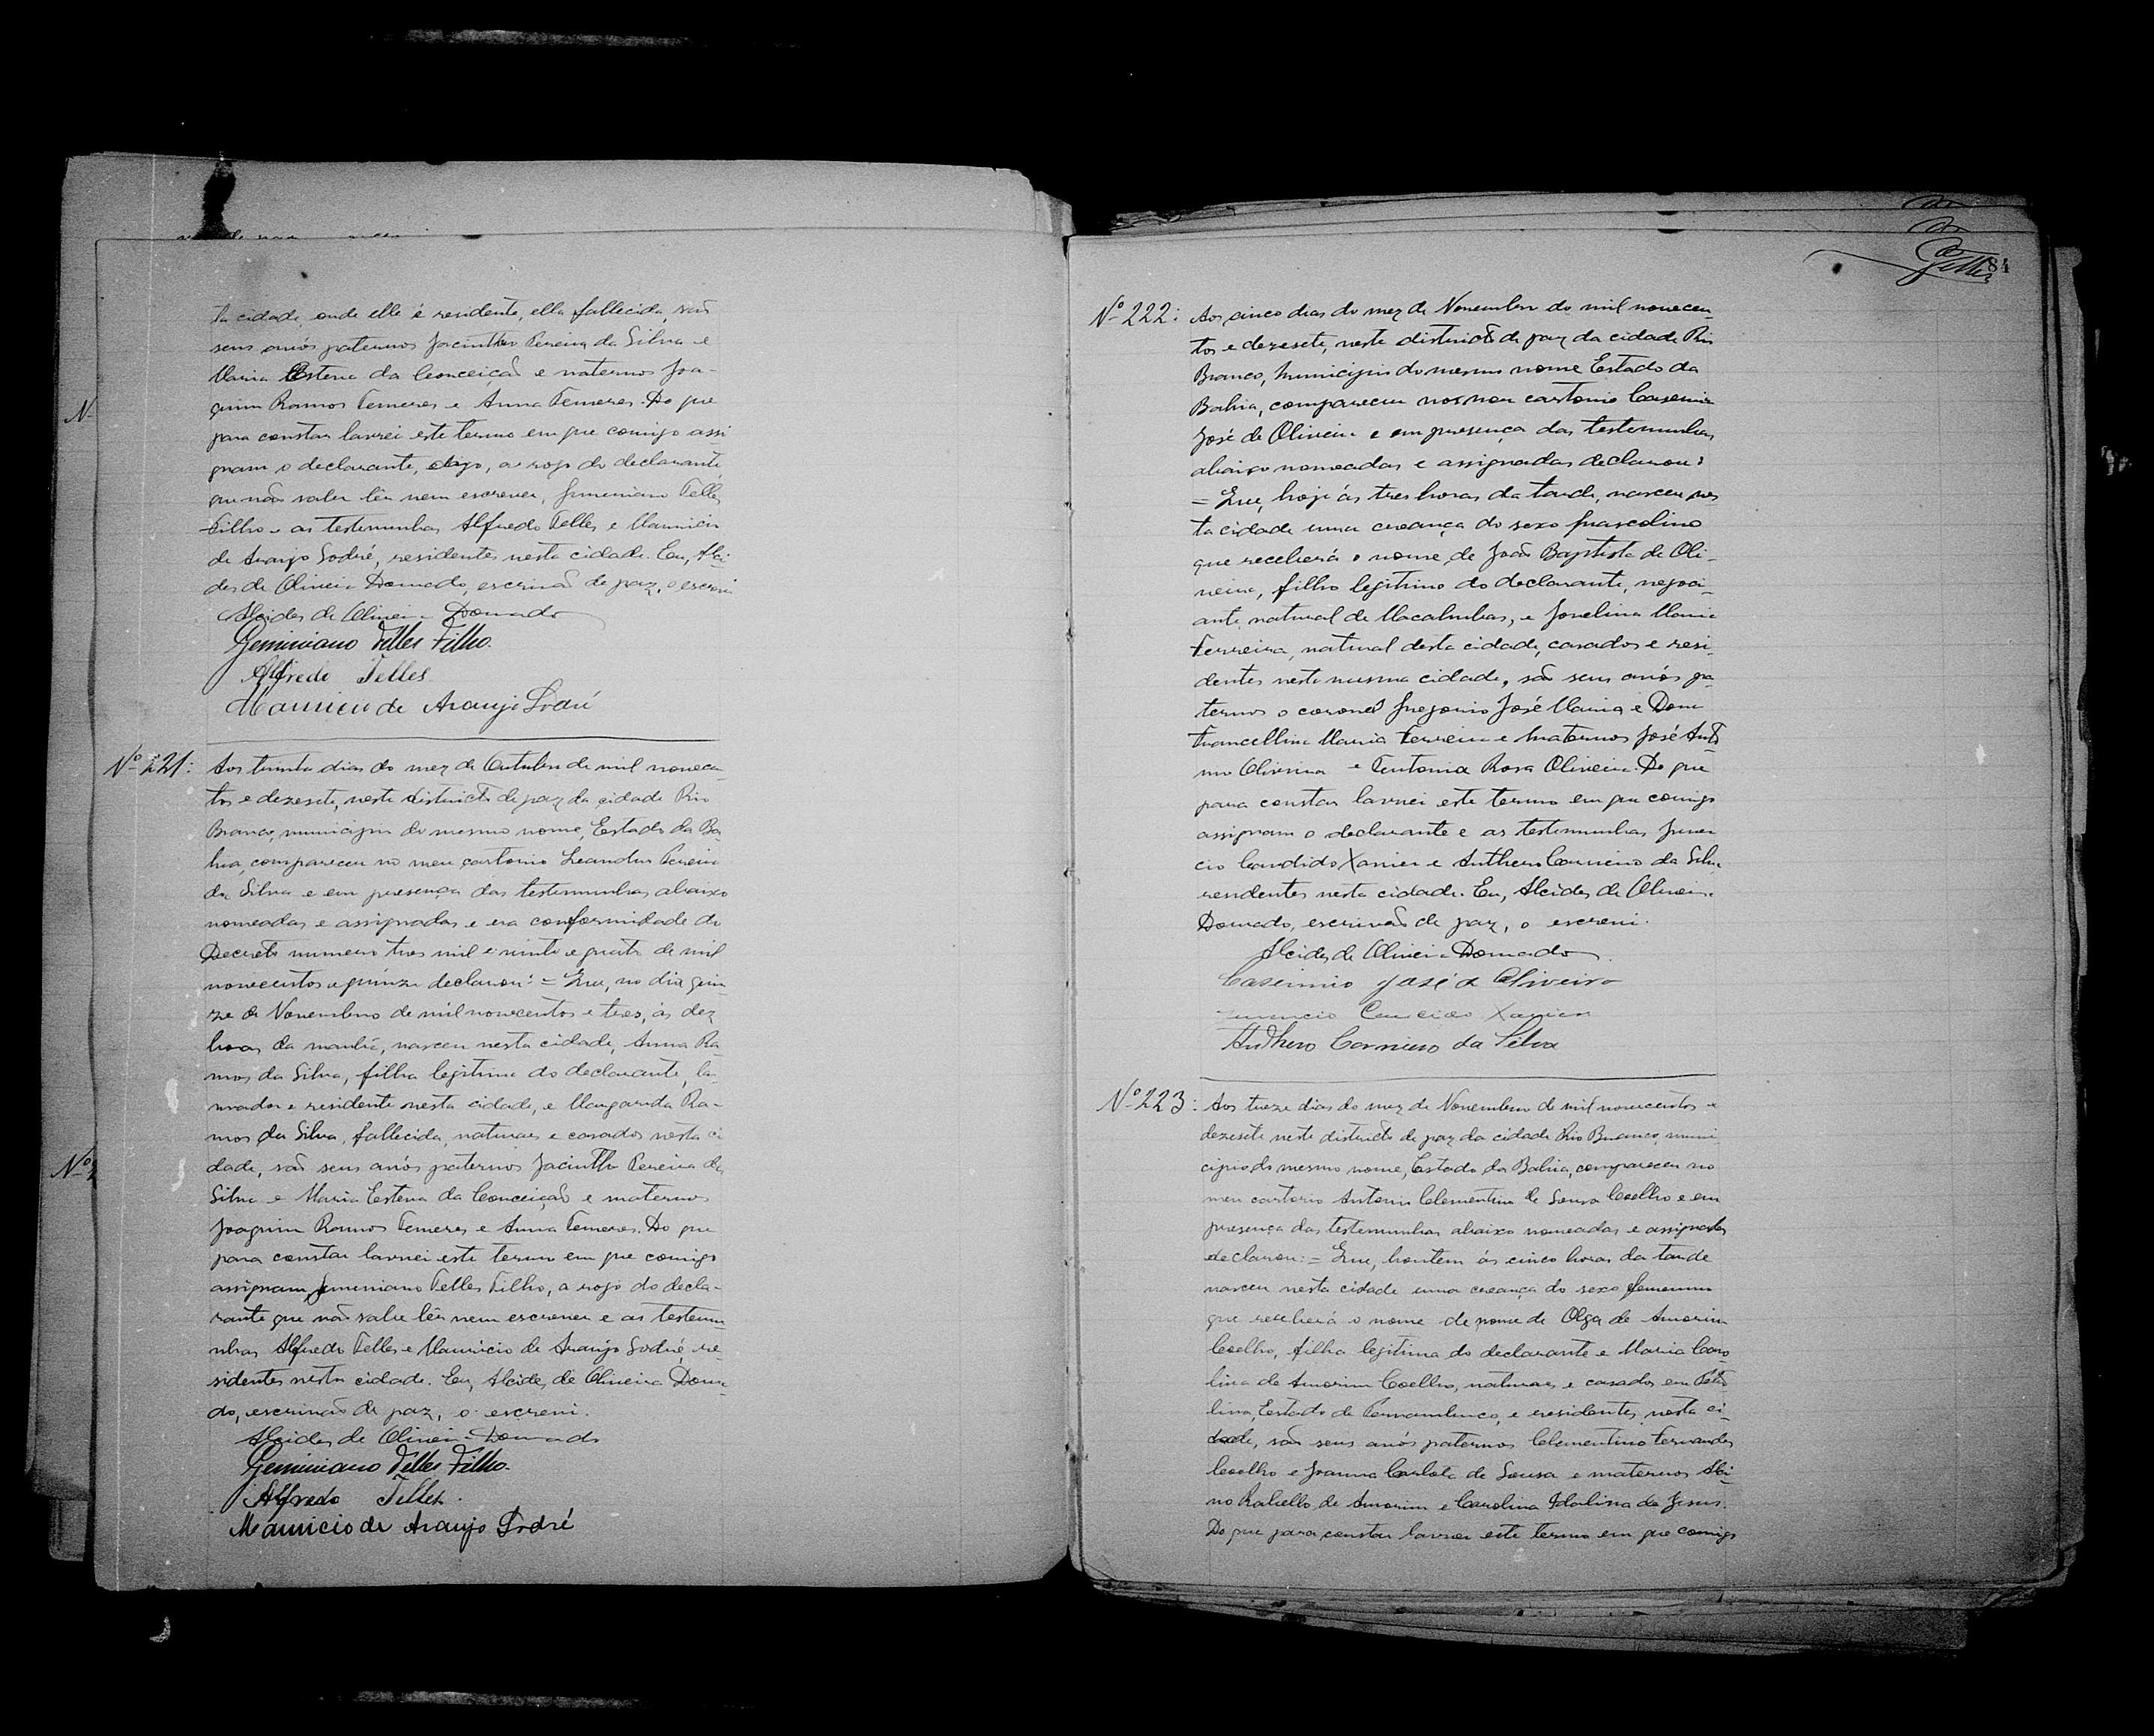 ta cidade, onde elle é residente, ella fallecida, são
seus avós paternos Jacintho Pereira da Silva e
Maria Esteria da Conceição e maternos Joa-
quim Ramos e Anna Do que
para constar lavrei este termo em que comigo assi
gnam o declarante, digo, a rogo do declarante
que não saber lêr nem escrever, Geminiano Telles
Filho e as testemunhas Alfredo Telles e Mauricio
de Araujo Sodré, residentes nesta cidade. Eu, Alci-
des de Oliveira Dourado, escrivão de paz, o escrevi
Alcides de Oliveira Dourado
Geminiano Telles Filho.
Alfredo Telles
Mauricio de Araujo Sodré
Nº 221: Aos trinta dias do mez de Outubro de mil novecen-
tos e dezesete, neste districto de paz da cidade Rio
Branco, municipio do mesmo nome, Estado da Ba
hia, compareceu no meu cartorio Leandro Pereira
da Silva e em presença das testemunhas abaixo
nomeadas e assignadas e em conformidade do
Decreto numero tres mil e vinte e quatro de mil
novecentos e quinze declarou: = Que, no dia quin
ze de Novembro de mil novecentos e tres, ás dez
horas da manhã, nasceu nesta cidade, Anna Ra
mos da Silva, filha legitima do declarante, la-
vrador e residente nesta cidade, e Margarida Ra-
mos da Silva, fallecida, naturaes e casados nesta ci
dade, são seus avós paternos Jacintho Pereira da
Silva e Maria Esteria da Conceição e maternos
Joaquim Ramos e Anna Do que
para constar lavrei este termo em que comigo
assignam Geminiano Telles Filho, a rogo do decla-
rante que não sabe lêr nem escrever e as testemu
nhas Alfredo Telles e Mauricio de Araujo Sodré, re-
sidentes nesta cidade. Eu, Alcides de Oliveira Doura-
do, escrivão de paz, o escrevi.
Alcides de Oliveira Dourado
Geminiano Telles Filho.
Alfredo Telles.
Mauricio de Araujo Sodré
Telles 84
Nº 222: Aos cinco dias do mez de Novembro do mil novecen-
tos e dezesete, neste districto de paz da cidade Rio
Branco, municipio do mesmo nome Estado da
Bahia, compareceu no meu cartorio Casemiro
José de Oliveira e em presença das testemunhas
abaixo nomeadas e assignadas declarou:
= Que, hoje ás tres horas da tarde, nasceu nes
ta cidade uma creança do sexo masculino
que receberá o nome de João Baptista de Oli-
veira, filho legitimo do declarante, negoci-
ante, natural de Macahubas, e Jovelina Maria
Ferreira, natural desta cidade, casados e resi-
dentes nesta mesma cidade, são seus avós pa-
ternos o coronel Gregorio José Maria e Dona
Francellina Maria Ferreira e maternos José Anto
nio Oliveira e Rosa Oliveira. Do que
para constar lavrei este termo em que comigo
assignam o declarante e as testemunhas Juven
cio Candido Xavier e Anthero Carneiro da Silva
residentes nesta cidade. Eu, Alcides de Oliveira
Dourado, escrivão de paz, o escrevi.
Alcides de Oliveira Dourado.
Casimiro José de Oliveira
Juvencio Candido Xavier
Anthero Carneiro da Silva
Nº 223: Aos treze dias do mez de Novembro de mil novecentos e
dezesete neste districto de paz da cidade Rio Branco, muni
cipio do mesmo nome, Estado da Bahia, compareceu no
meu cartorio Antonio Clementino de Sousa Coelho e em
presença das testemunhas abaixo nomeadas e assignadas
declarou: = Que, hontem ás cinco horas da tarde
nasceu nesta cidade uma creança do sexo femenino
que receberá o nome de nome de Olga de Amorim
Coelho, filha legitima do declarante e Maria Caro
lina de Amorim Coelho, naturaes e casados em Petro
lina, Estado de Pernambuco, e residentes nesta ci-
dade, são seus avós paternos Clementino Fernandes
Coelho e Joanna Carlota de Sousa e maternos Albi-
no Rabello de Amorim e Carolina Idalina de Jesus.
Do que para constar lavrei este termo em que comigo